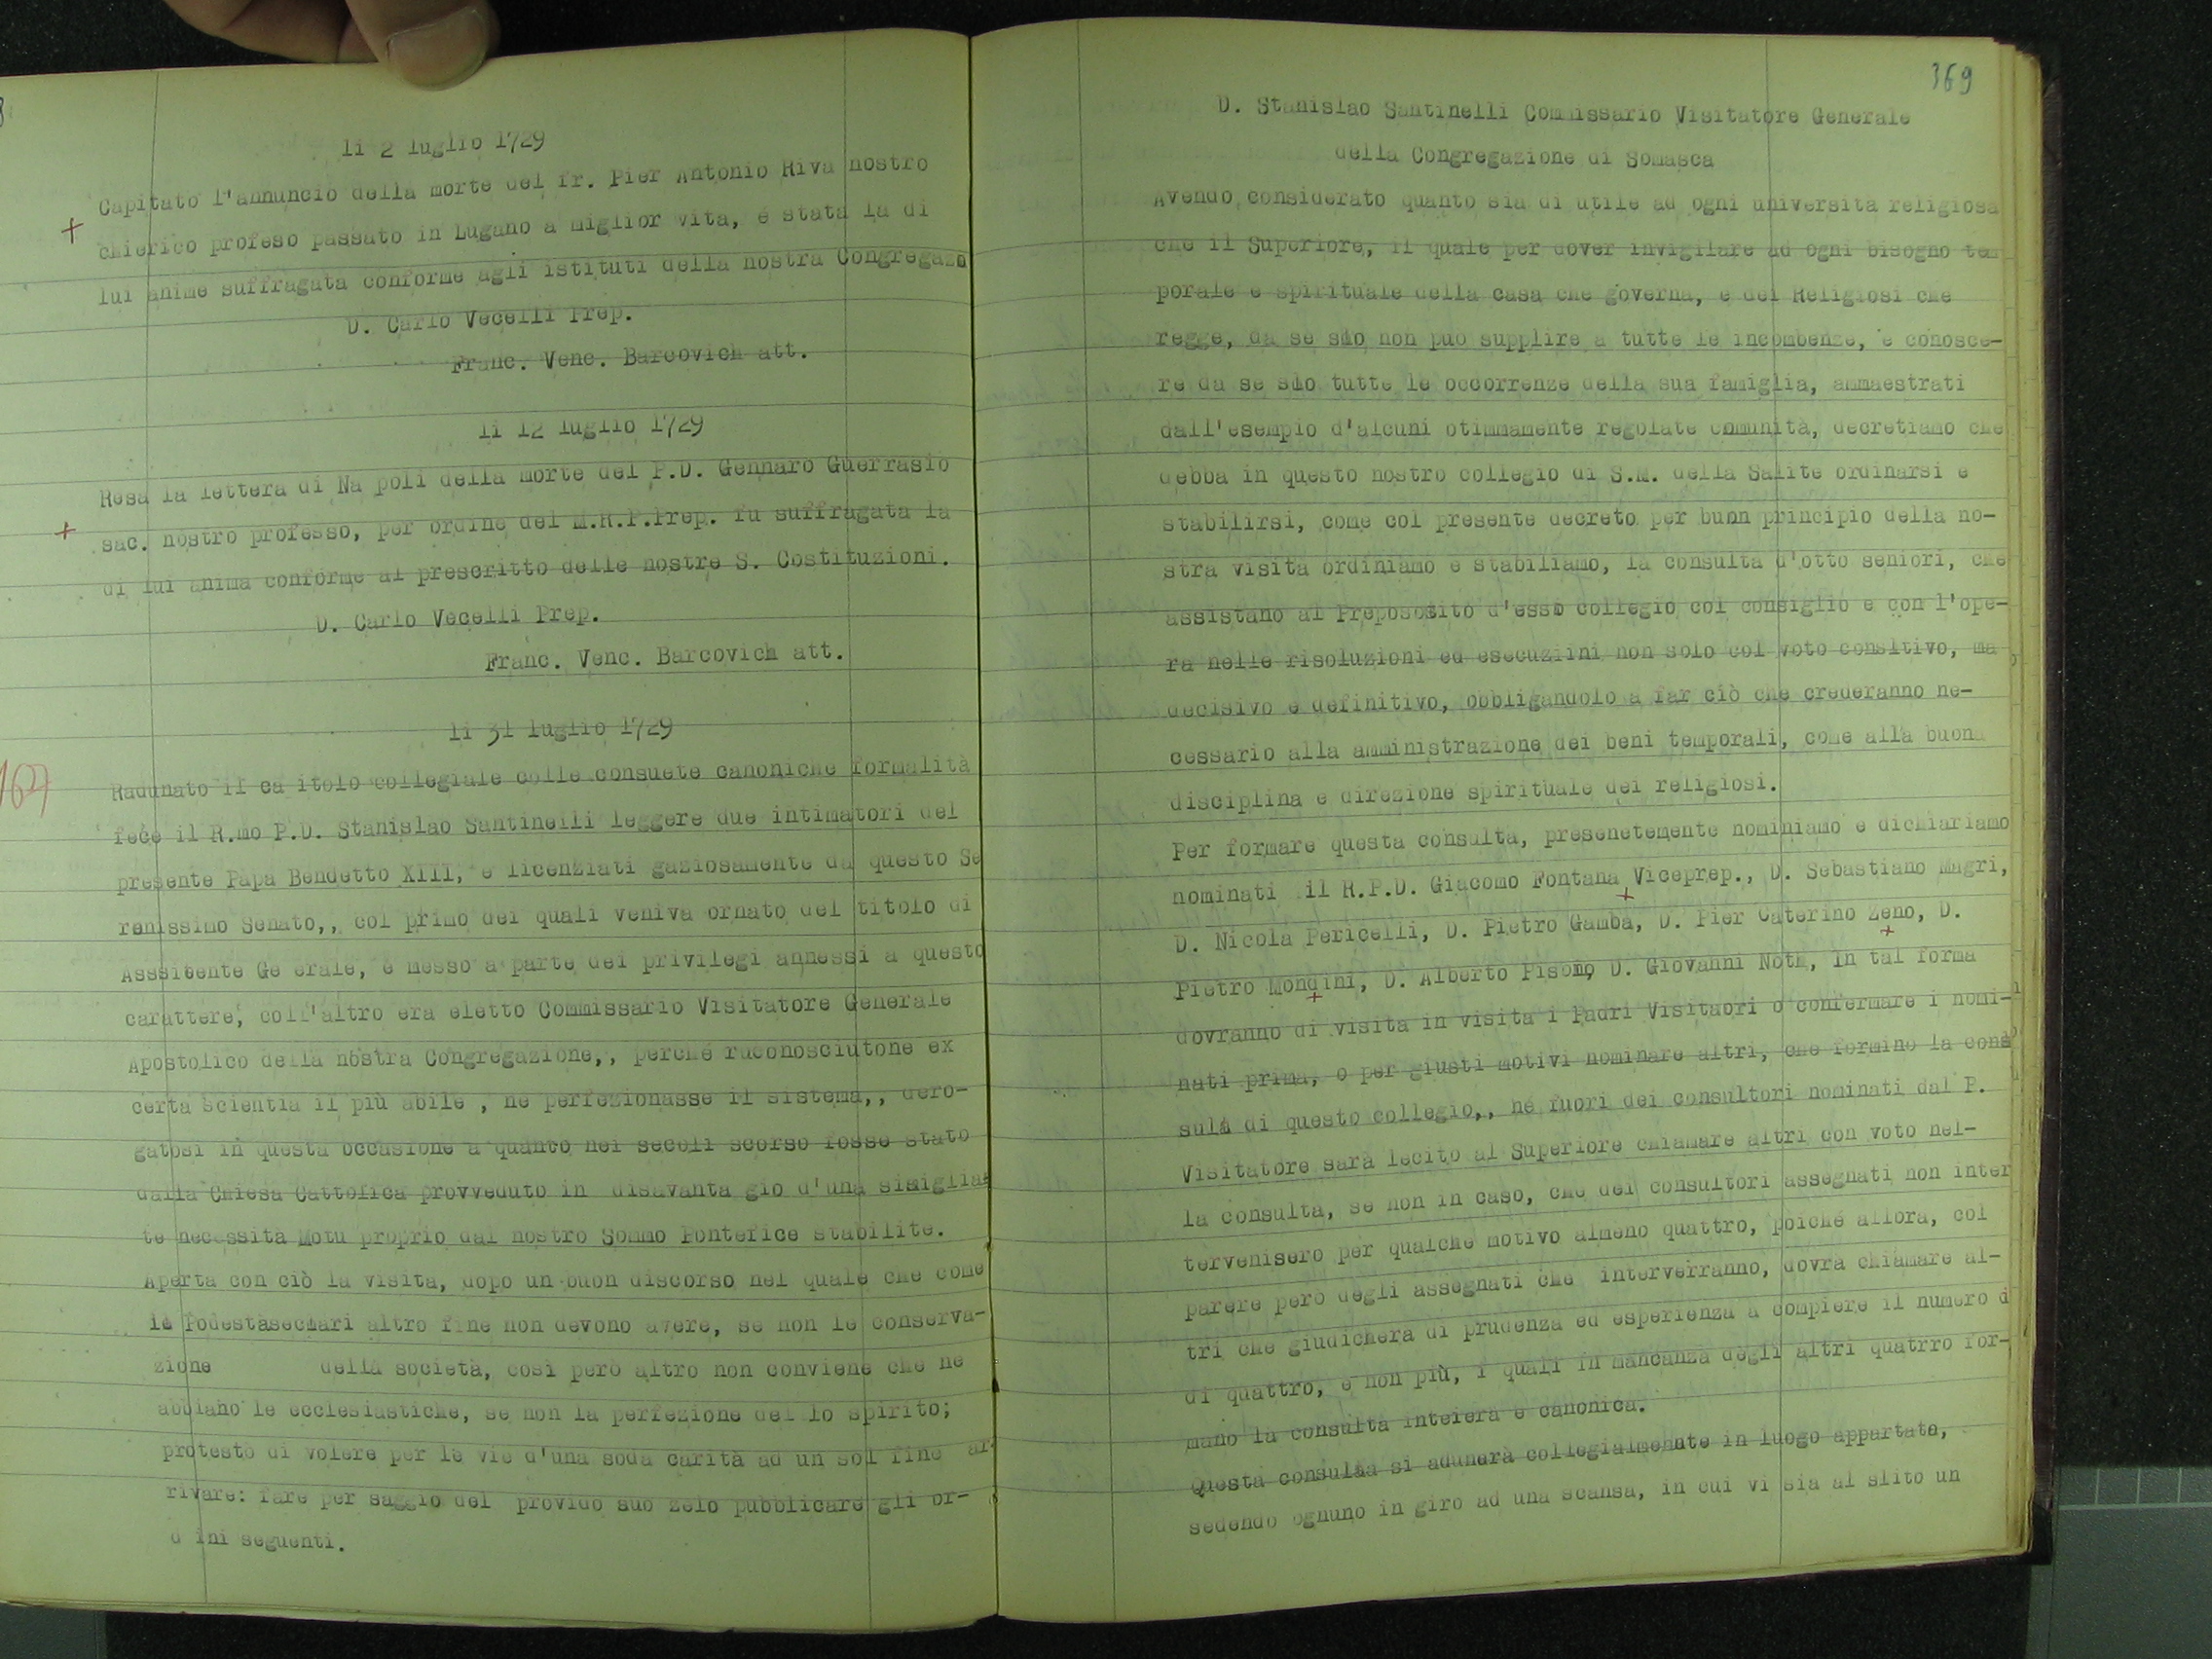 li 2 luglio 1729
Capitato l'annuncio della morte del fr. Pier Antonio Riva nostro
chierico profeso passato in Lugano a miglior vita, è stata la di
lui anime suffragata conforme agli istituti della nostra Congregazo
D. Carlo Vecelli Prep.
Franc. Venc. Barcovich att.
li 12 luglio 1729
Resa la lettera di Na poli della morte del P.D. Gennaro Guerrasio
sac. nostro professo, per ordine del M.R.P.Prep. fu suffragata la
di lui anima conforme al prescritto delle nostre S. Costituzioni.
D. Carlo Vecelli Prep.
Franc. Venc. Barcovich att.
li 31 luglio 1729
Radunato il ca itolo collegiale colle consuete canoniche formalità
fece il R.mo P.D. Stanislao Santinelli leggere due intimatori del
presente Papa Bendetto XIII, e licenziati gaziosamente da questo Se
renissimo Senato,, col primo dei quali veniva ornato del titolo di
Asssitente Ge erale, e messo a parte dei privilegi annessi a questo
carattere, coll'altro era eletto Commissario Visitatore Generale
Apostolico della nostra Congregazione,, perché raconosciutone ex
certa scientia il più abile , ne perfezionasse il sistema,, dero-
gatosi in questa occasione a quanto nei secoli scorso fosse stato
dalla Chiesa Cattolica provveduto in disavanta gio d'una simiglian
te necessità Motu proprio dal nostro Sommo Pontefice stabilite.
Aperta con ciò la visita, dopo un buon discorso nel quale che come
le Podestàseclari altro fine non devono avere, se non le conserva-
zione della società, così però altro non conviene che ne
abbiano le ecclesiastiche, se non la perfezione del lo spirito;
protestò di volere per le vie d'una soda carità ad un sol fine ar
rivare: fare per saggio del provido suo zelo pubblicare gli or-
d ini seguenti.
369
D. Stanislao Santinelli Commissario Visitatore Generale
della Congregazione di Somasca
Avendo considerato quanto sia di utile ad ogni università religiosa
che il Superiore, il quale per dover invigilare ad ogni bisogno tem
porale e spirituale della casa che governa, e dei Religiosi che
regge, da se slo non può supplire a tutte le incombenze, e conosce-
re da se slo tutte le occorrenze della sua famiglia, ammaestrati
dall'esempio d'alcuni otimmamente regolate comunità, decretiamo che
debba in questo nostro collegio di S.M. della Salite ordinarsi e
stabilirsi, come col presente decreto per buon principio della no-
stra visita ordiniamo e stabiliamo, la consulta d'otto seniori, che
assistano al Prepososito d'esso collegio col consiglio e con l'ope-
ra nelle risoluzioni ed esecuziini non solo col voto consltivo, ma
decisivo e definitivo, obbligandolo a far ciò che crederanno ne-
cessario alla amministrazione dei beni temporali, come alla buona
disciplina e direzione spirituale dei religiosi.
Per formare questa consulta, presenetemente nominiamo e dichiariamo
nominati il R.P.D. Giacomo Fontana Viceprep., D. Sebastiano Magri,
D. Nicola Pericelli, D. Pietro Gamba, D. Pier Caterino Zeno, D.
Pietro Mondini, D. Alberto Pisoni, D. Giovanni Noth, In tal forma
dovranno di visita in visita i Padri Visitaori o confermare i nomi-
nati prima, o per giusti motivi nominare altri, che formino la cons
sulta di questo collegio,, né fuori dei consultori nominati dal P.
Visitatore sarà lecito al Superiore chiamare altri con voto nel-
la consulta, se non in caso, che dei consultori assegnati non inter
tervenisero per qualche motivo almeno quattro, poiché allora, col
parere però degli assegnati che interverranno, dovrà chiamare al-
tri che giudicherà di prudenza ed esperienza a compiere il numero d
di quattro, e non più, i quali in mancanza degli altri quatrro for-
mano la consulta inteiera e canonica.
Questa consulta si adunerà collegialmente in luogo appartato,
sedendo ognuno in giro ad una scansa, in cui vi sia al slito un